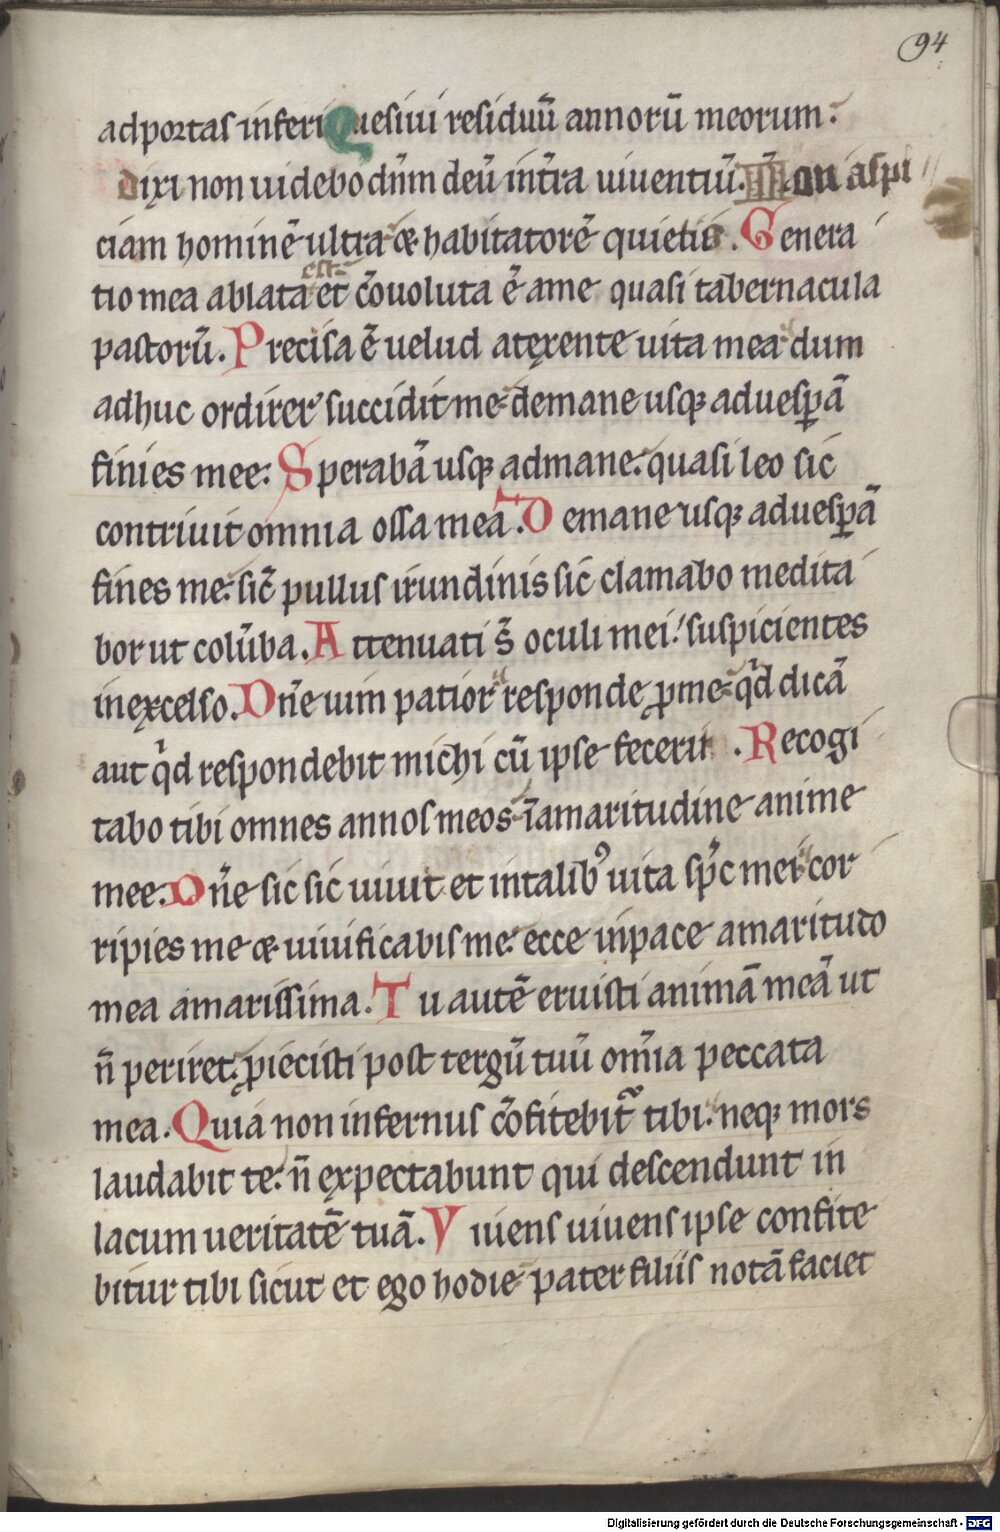 94
adportas inferi Quesiui residuū annorū meorum.
dixi non uidebo dn̄m deū in tr̄a uiuentiū. Non aspi
ciam hominē ultra & habitatorē quietis. Genera
tio mea ablata est et c̄ouoluta ē ame quasi tabernacula
pastorū. Precisa ē uelud atexente uita mea dum
adhuc ordirer succidit me demane usq; aduesꝑā
finies mee. Sperabā usq; admane. quasi leo sic
contriuit omnia ossa mea. Demane usq; aduesꝑā
fines me. sic̄ pullus irundinis sic̄ clamabo medita
bor ut colūba. Attenuati s̄ oculi mei. suspicientes
inexcelso. Dn̄e uim patior responde ꝓme qͥd dicā
aut qͥd respondebit michi cū ipse fecerit. Recogi
tabo tibi omnes annos meos īamaritudine anime
mee. Dn̄e sic sic uiuit et intalibꝰ uita sp̄c mei cor
ripies me & uiuificabis me. ecce inpace amaritudo
mea amarissima. Tu autē eruisti animā meā ut
n̄ periret. ꝓiecisti post tergū tuū om̄ia peccata
mea. Quia non infernus c̄ofitebit᷑ tibi. neq; mors
laudabit te. n̄ expectabunt qui descendunt in
lacum ueritatē tuā. Viuens uiuens ipse confite
bitur tibi sicut et ego hodie pater filiis notā faciet
Digitalisierung gefördert durch die Deutsche Forschungsgemeinschaft - DFG